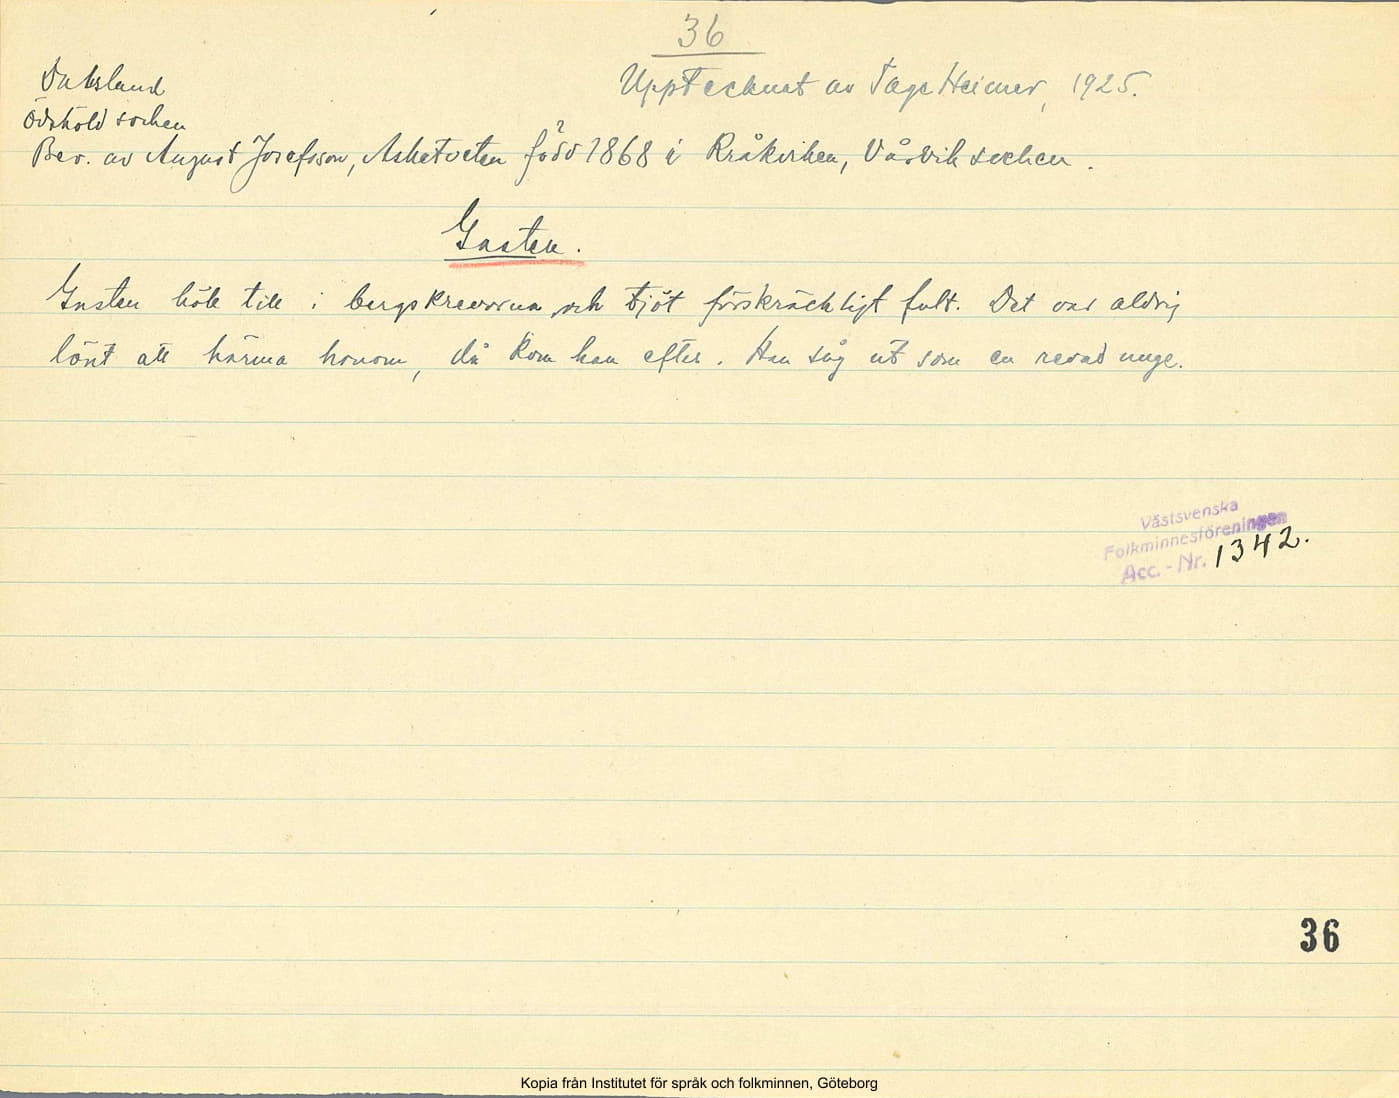 36
Dalsland
Upptecknat av Tage Heimer, 1925.
Ödskölds socken
Ber. av August Josefsson, Asketveten född 1868 i Kråkviken, Vårvik socken.
Gasten.
Gasten höll till i bergskrevorna och tjöt förskräckligt fult. Det var aldrig
lönt att härma honom, då kom han efter. Han såg ut som en unge.
Västsvenska
Folkminnesföreningen
Acc. - Nr. 1342.
36
Kopia från Institutet för språk och folkminnen, Göteborg